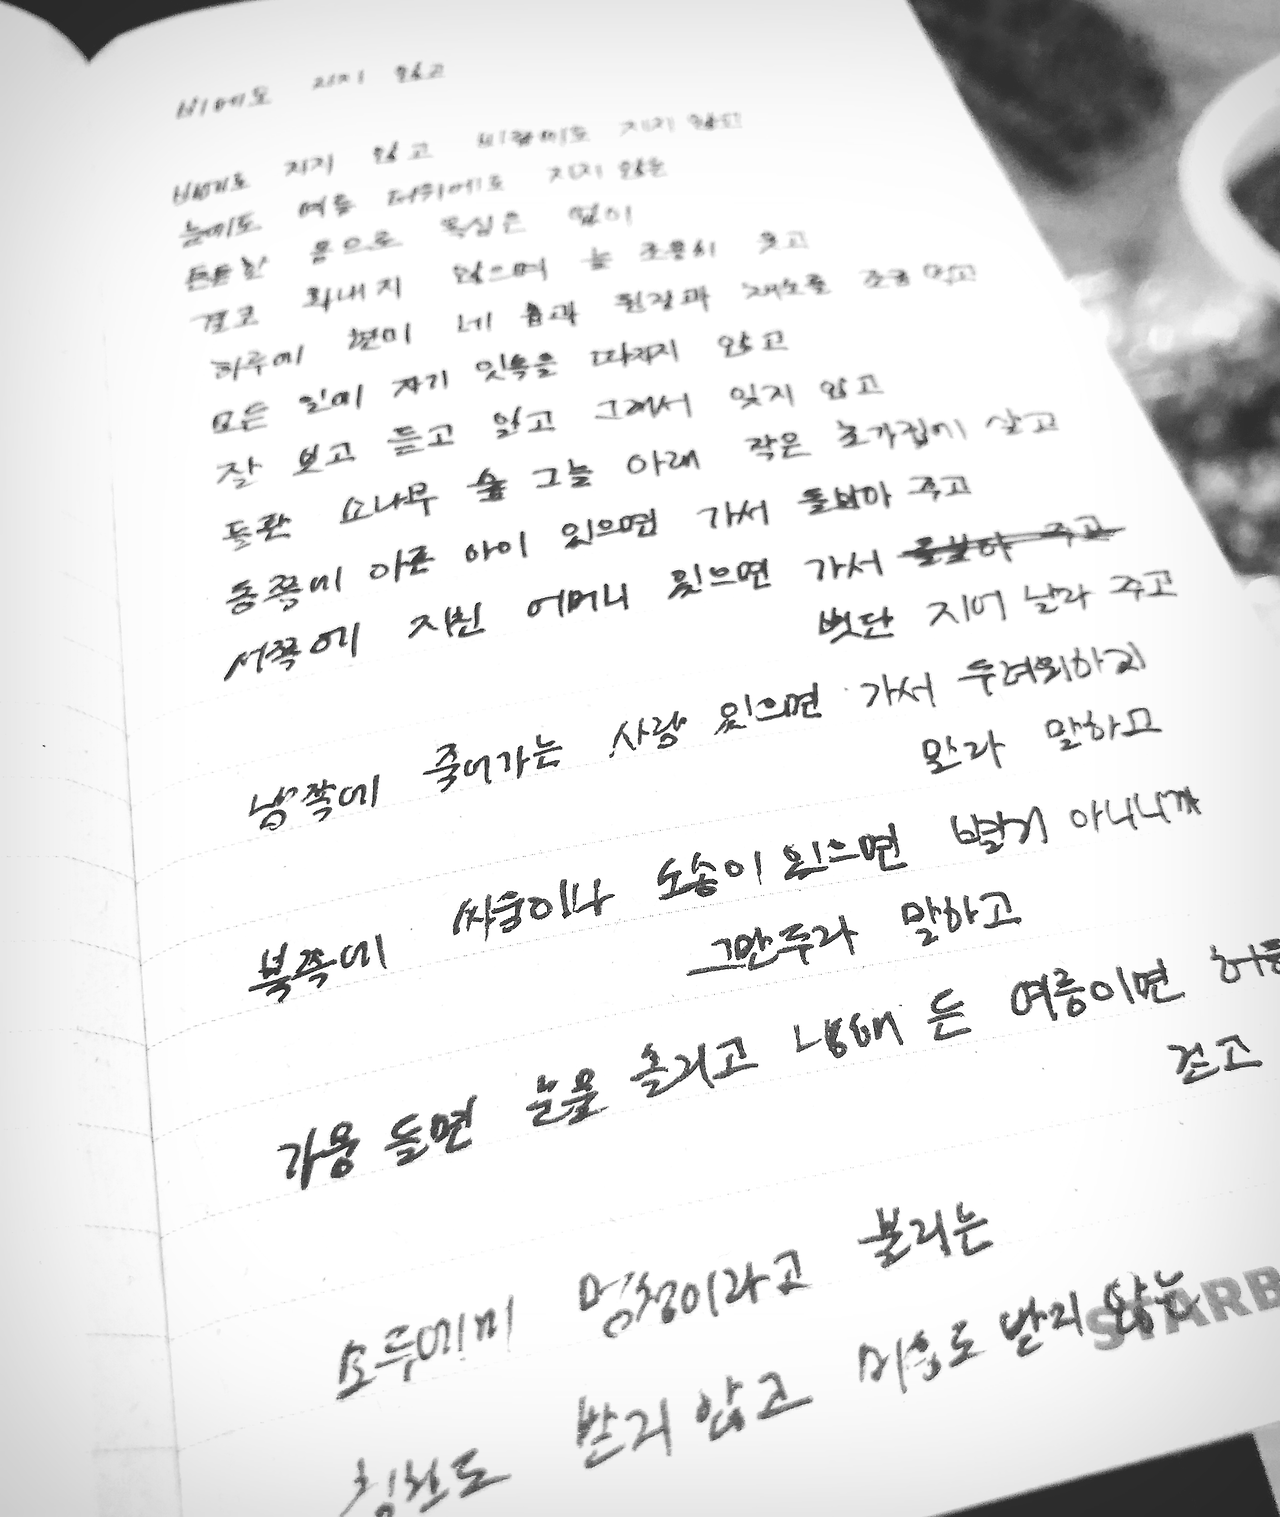 비에도 지지 않고
비에도 지지 않고 바람에도 지지 않고
눈에도 여름 더위에도 지지 않는
튼튼한 몸으로 욕심은 없이
결코 화내지 않으며 늘 조용히 웃고
하루에 현미 네 홉과 된장과 채소를 조금 먹고
모든 일에 자기 잇속을 따지지 않고
잘 보고 듣고 알고 그래서 잊지 않고
들판 소나무 숲 그늘 아래 작은 초가집에 살고
동쪽에 아픈 아이 있으면 가서 돌보아 주고
서쪽에 지친 어머니 있으면 가서 돌보아 주고
볏단 지어 날라 주고
남쪽에 죽어가는 사람 있으면 가서 두려워하지
말라 말하고
북쪽에 싸움이나 소송이 있으면 별거 아니니까
그만두라 말하고
가뭄 들면 눈물 흘리고 냉해 든 여름이면 허둥
걷고
모두에게 멍청이라고 불리는
칭찬도 받지 않고 미움도 받지 않는
STARB